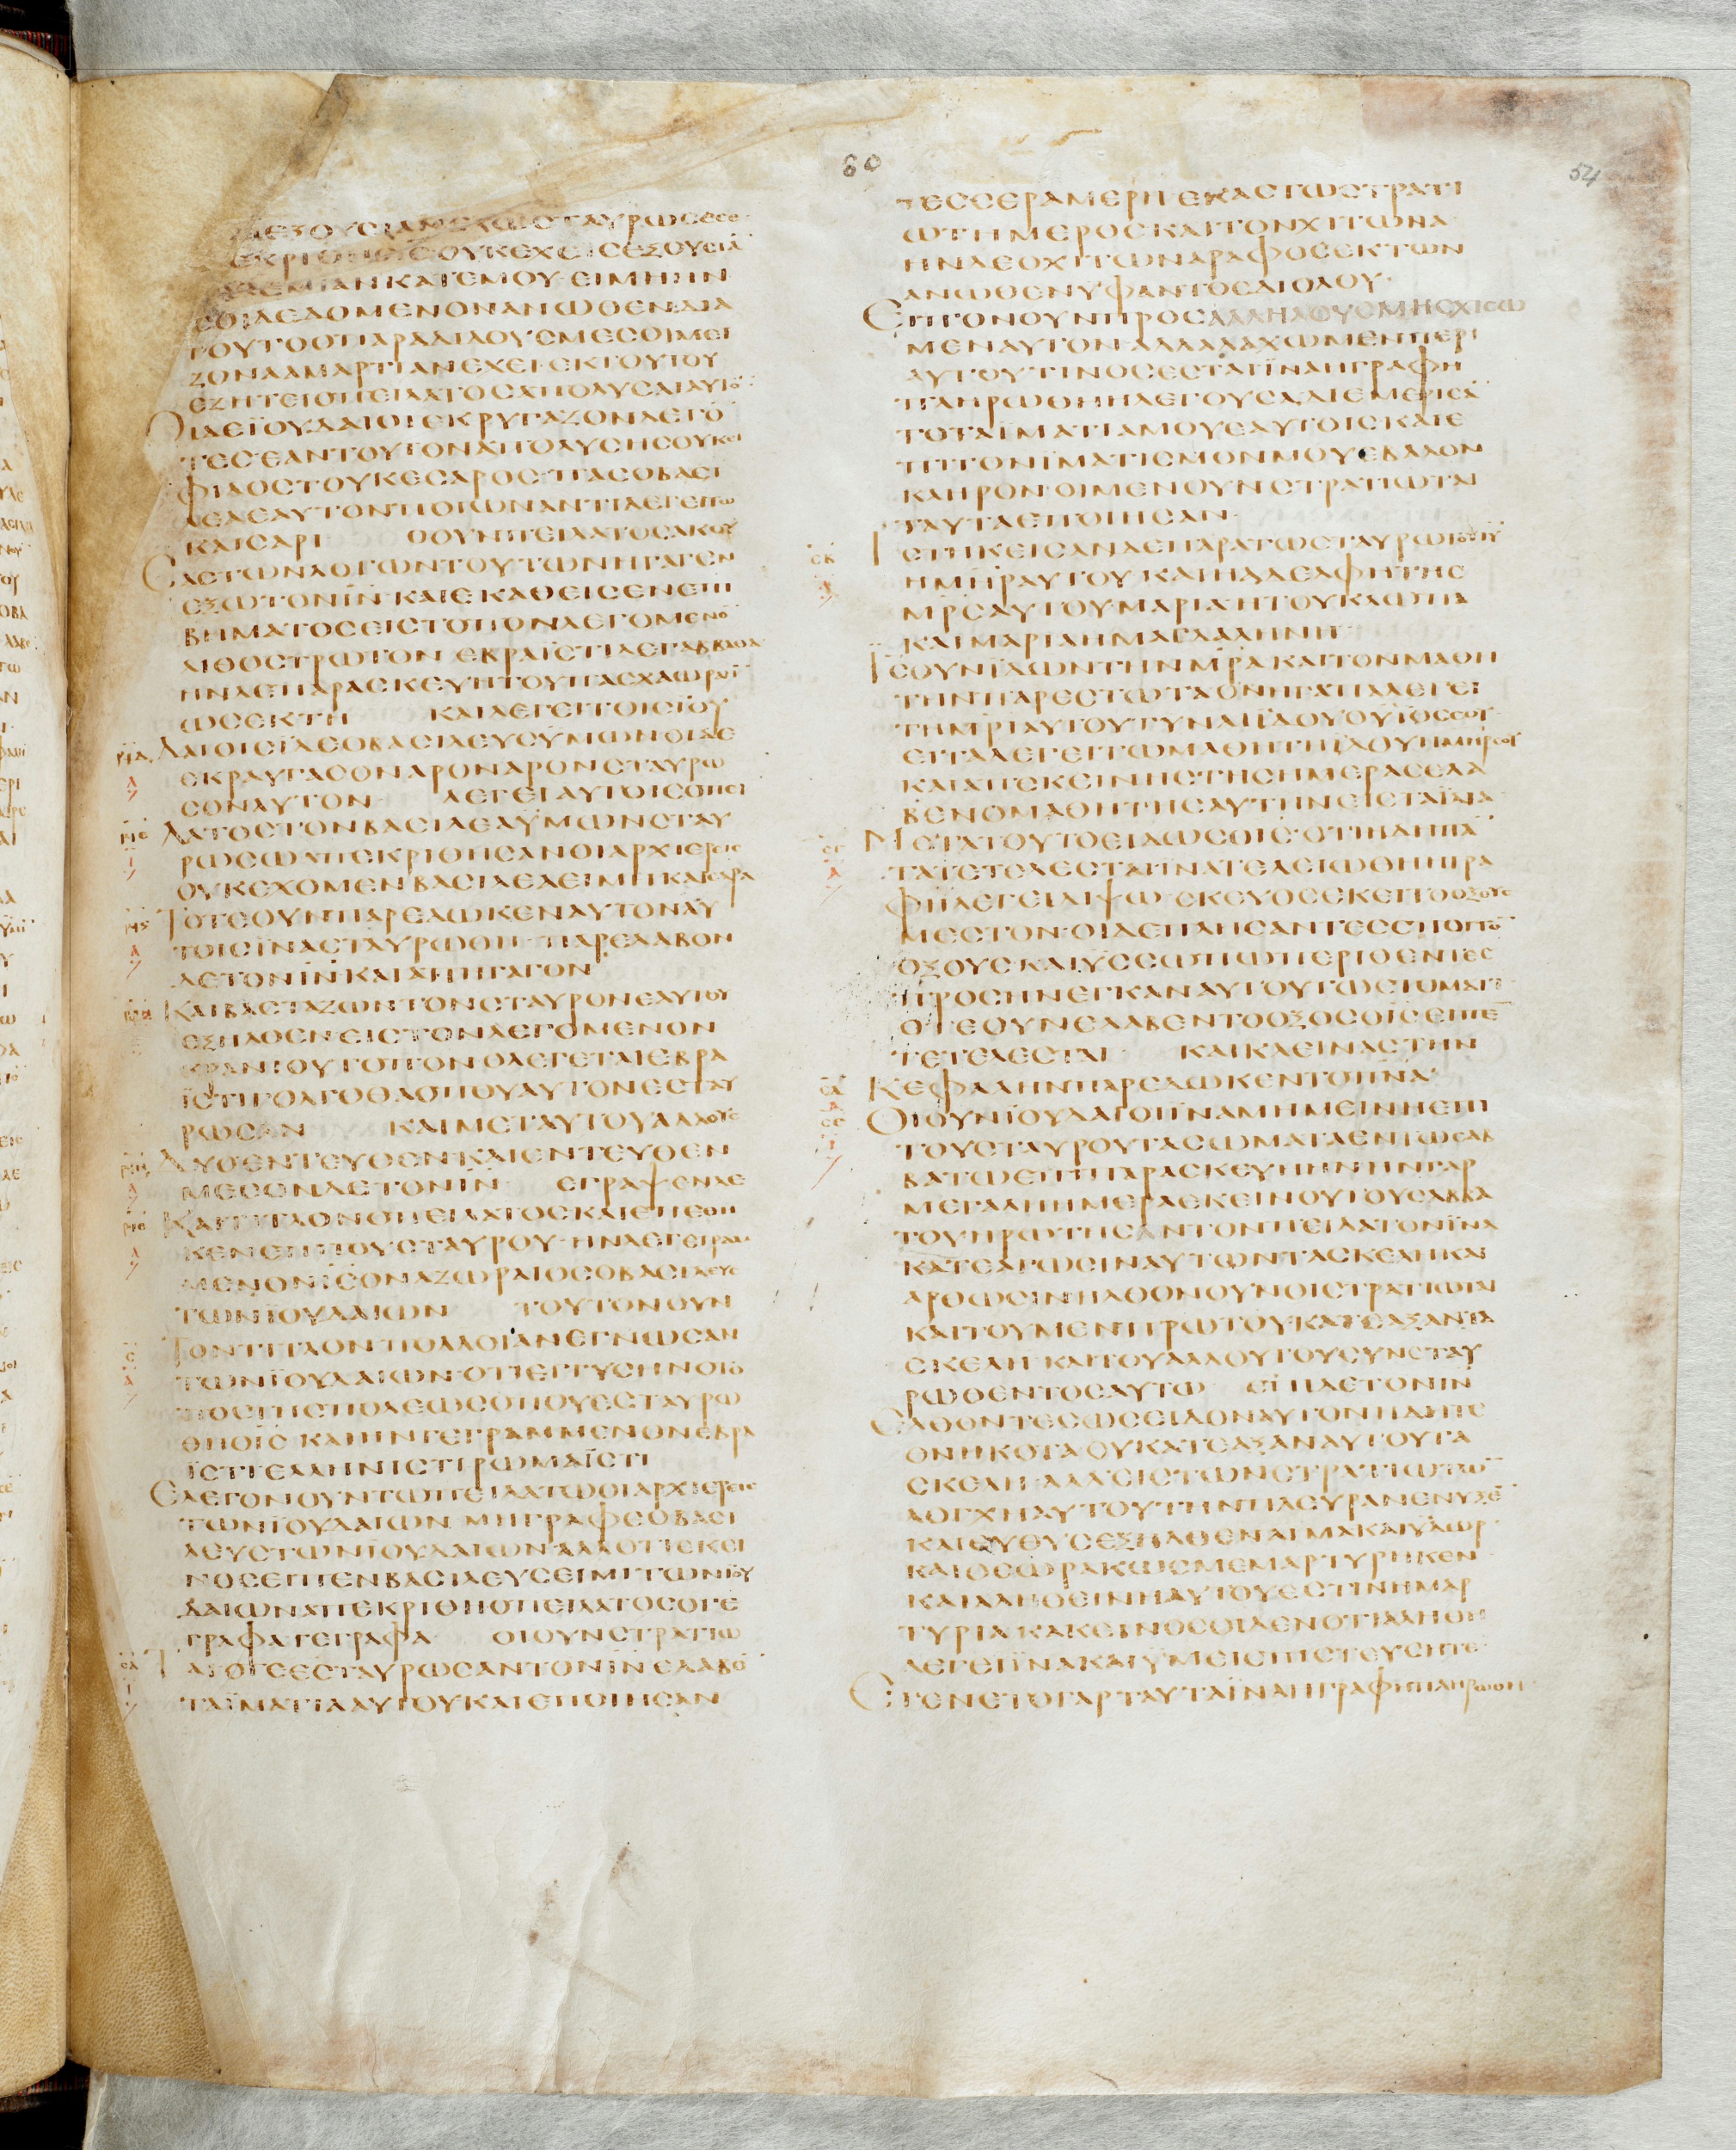 60
54
ΕΞΟΥϹΙΑΝ ΕΧΩ ϹΤΑΥΡΩϹΕ ϹΕ
ΕΚΡΙΘΗ ΙϹ ΟΥΚ ΕΧΕΙϹ ΕΞΟΥϹΙΑ̅
ΚΑΤ ΕΜΟΥ· ΕΙ ΜΗ ΗΝ
ϹΟΙ ΔΕΔΟΜΕΝΟΝ ΑΝΩΘΕΝ· ΔΙΑ
ΤΟΥΤΟ Ο ΠΑΡΑΔΙΔΟΥϹ ΜΕ ϹΟΙ ΜΕΙ
ΖΟΝΑ ΑΜΑΡΤΙΑΝ ΕΧΕΙ· ΕΚ ΤΟΥΤΟΥ
ΕΖΗΤΕΙ Ο ΠΕΙΛΑΤΟϹ ΑΠΟΛΥϹΑΙ ΑΥΤΟ̅
ΟΙ ΔΕ ΪΟΥΔΑΙΟΙ ΕΚΡΑΥΓΑΖΟΝ ΛΕΓΟ̅
ΤΕϹ ΕΑΝ ΤΟΥΤΟΝ ΑΠΟΛΥϹΗϹ ΟΥΚ ΕΙ
ΦΙΛΟϹ ΤΟΥ ΚΕϹΑΡΟϹ· ΠΑϹ Ο ΒΑϹΙ
ΛΕΑ ΕΑΥΤΟΝ ΠΟΙΩΝ ΑΝΤΙΛΕΓΕΙ ΤΩ
ΚΑΙϹΑΡΙ Ο ΟΥΝ ΠΕΙΛΑΤΟϹ ΑΚΟΥ
ϹΑϹ ΤΩΝ ΛΟΓΩΝ ΤΟΥΤΩΝ ΗΓΑΓΕΝ
ΕΞΩ ΤΟΝ Ι̅Ν̅ ΚΑΙ ΕΚΑΘΕΙϹΕΝ ΕΠΙ
ΒΗΜΑΤΟϹ ΕΙϹ ΤΟΠΟΝ ΛΕΓΟΜΕΝΟ̅
ΛΙΘΟϹΤΡΩΤΟΝ ΕΒΡΑΪϹΤΙ ΔΕ ΓΑΒΒΑΘΑ
ΗΝ ΔΕ ΠΑΡΑϹΚΕΥΗ ΤΟΥ ΠΑϹΧΑ ΩΡΑ ΗΝ
ΩϹ ΕΚΤΗ ΚΑΙ ΛΕΓΕΙ ΤΟΙϹ ΪΟΥ
ΔΑΙΟΙϹ ΪΔΕ Ο ΒΑϹΙΛΕΥϹ ΫΜΩΝ ΟΙ ΔΕ
ΕΚΡΑΥΓΑϹΟΝ ΑΡΟΝ ΑΡΟΝ ϹΤΑΥΡΩ
ϹΟΝ ΑΥΤΟΝ ΛΕΓΕΙ ΑΥΤΟΙϹ Ο ΠΕΙ
ΛΑΤΟϹ ΤΟΝ ΒΑϹΙΛΕΑ ΫΜΩΝ ϹΤΑΥ
ΡΩϹΩ ΑΠΕΚΡΙΘΗϹΑΝ ΟΙ ΑΡΧΙΕΡΕΙϹ
ΟΥΚ ΕΧΟΜΕΝ ΒΑϹΙΛΕΑ ΕΙ ΜΗ ΚΑΙϹΑΡΑ
ΤΟΤΕ ΟΥΝ ΠΑΡΕΔΩΚΕΝ ΑΥΤΟΝ ΑΥ
ΤΟΙϹ ΪΝΑ ϹΤΑΥΡΩΘΗ· ΠΑΡΕΛΑΒΟΝ
ΔΕ ΤΟΝ Ι̅Ν̅ ΚΑΙ ΑΠΗΓΑΓΟΝ
ΚΑΙ ΒΑϹΤΑΖΩΝ ΤΟΝ ϹΤΑΥΡΟΝ ΕΑΥΤΟΥ
ΕΞΗΛΘΕΝ ΕΙϹ ΤΟΝ ΛΕΓΟΜΕΝΟΝ
ΚΡΑΝΙΟΥ ΤΟΠΟΝ Ο ΛΕΓΕΤΑΙ ΕΒΡΑ
ΪϹΤΙ ΓΟΛΓΟΘΑ ΟΠΟΥ ΑΥΤΟΝ ΕϹΤΑΥ
ΡΩϹΑΝ ΚΑΙ ΜΕΤ ΑΥΤΟΥ ΑΛΛΟΥϹ
ΔΥΟ ΕΝΤΕΥΘΕΝ ΚΑΙ ΕΝΤΕΥΘΕΝ
ΜΕϹΟΝ ΔΕ ΤΟΝ Ι̅Ν̅ ΕΓΡΑΨΕΝ ΔΕ
ΚΑΙ ΤΙΤΛΟΝ Ο ΠΕΙΛΑΤΟϹ ΚΑΙ ΕΠΕΘΗ
ΚΕΝ ΕΠΙ ΤΟΥ ϹΤΑΥΡΟΥ· ΗΝ ΔΕ ΓΕΓΡΑΜ
ΜΕΝΟΝ Ι̅Ϲ̅ Ο ΝΑΖΩΡΑΙΟϹ Ο ΒΑϹΙΛΕΥϹ
ΤΩΝ ΪΟΥΔΑΙΩΝ ΤΟΥΤΟΝ ΟΥΝ
ΤΟΝ ΤΙΤΛΟΝ ΠΟΛΛΟΙ ΑΝΕΓΝΩϹΑΝ
ΤΩΝ ΪΟΥΔΑΙΩΝ· ΟΤΙ ΕΓΓΥϹ ΗΝ Ο ΤΟ
ΠΟϹ ΤΗϹ ΠΟΛΕΩϹ ΟΠΟΥ ΕϹΤΑΥΡΩ
ΘΗ Ο Ι̅Ϲ̅ ΚΑΙ ΗΝ ΓΕΓΡΑΜΜΕΝΟΝ ΕΒΡΑ
ΪϹΤΙ ΕΛΛΗΝΙϹΤΙ ΡΩΜΑΪϹΤΙ
ΕΛΕΓΟΝ ΟΥΝ ΤΩ ΠΕΙΛΑΤΩ ΟΙ ΑΡΧΙΕΡΕΙϹ
ΤΩΝ ΪΟΥΔΑΙΩΝ ΜΗ ΓΡΑΦΕ Ο ΒΑϹΙ
ΛΕΥϹ ΤΩΝ ΪΟΥΔΑΙΩΝ· ΑΛΛ ΟΤΙ ΕΚΕΙ
ΝΟϹ ΕΙΠΕΝ ΒΑϹΙΛΕΥϹ ΕΙΜΙ ΤΩΝ ΪΟΥ
ΔΑΙΩΝ ΑΠΕΚΡΙΘΗ Ο ΠΕΙΛΑΤΟϹ Ο ΓΕ
ΓΡΑΦΑ ΓΕΓΡΑΦΑ ΟΙ ΟΥΝ ϹΤΡΑΤΙΩ
ΤΑΙ ΟΤΕ ΕϹΤΑΥΡΩϹΑΝ ΤΟΝ Ι̅Ν̅ ΕΛΑΒΟ̅
ΤΑ ΪΜΑΤΙΑ ΑΥΤΟΥ ΚΑΙ ΕΠΟΙΗϹΑΝ
ΤΕϹϹΕΡΑ ΜΕΡΗ ΕΚΑϹΤΩ ϹΤΡΑΤΙ
ΩΤΗ ΜΕΡΟϹ ΚΑΙ ΤΟΝ ΧΙΤΩΝΑ
ΗΝ ΔΕ Ο ΧΙΤΩΝ ΑΡΑΦΟϹ ΕΚ ΤΩΝ
ΑΝΩΘΕΝ ΥΦΑΝΤΟϹ ΔΙ ΟΛΟΥ·
ΕΙΠΟΝ ΟΥΝ ΠΡΟϹ ΑΛΛΗΛΟΥϹ ΜΗ ϹΧΙϹΩ
ΜΕΝ ΑΥΤΟΝ ΑΛΛΑ ΛΑΧΩΜΕΝ ΠΕΡΙ
ΑΥΤΟΥ ΤΙΝΟϹ ΕϹΤΑΙ ΪΝΑ Η ΓΡΑΦΗ
ΠΛΗΡΩΘΗ Η ΛΕΓΟΥϹΑ ΔΙΕΜΕΡΙϹΑ̅
ΤΟ ΤΑ ΪΜΑΤΙΑ ΜΟΥ ΕΑΥΤΟΙϹ ΚΑΙ Ε
ΠΙ ΤΟΝ ΪΜΑΤΙϹΜΟΝ ΜΟΥ ΕΒΑΛΟΝ
ΚΛΗΡΟΝ· ΟΙ ΜΕΝ ΟΥΝ ϹΤΡΑΤΙΩΤΑΙ
ΤΑΥΤΑ ΕΠΟΙΗϹΑΝ
ΪϹΤΗΚΕΙϹΑΝ ΔΕ ΠΑΡΑ ΤΩ ϹΤΑΥΡΩ ΤΟΥ Ι̅Υ̅
Η Μ̅Η̅Ρ̅ ΑΥΤΟΥ ΚΑΙ Η ΑΔΕΛΦΗ ΤΗϹ
Μ̅Ρ̅Ϲ̅ ΑΥΤΟΥ ΜΑΡΙΑ Η ΤΟΥ ΚΛΩΠΑ
ΚΑΙ ΜΑΡΙΑ Η ΜΑΓΔΑΛΗΝΗ
Ι̅Ϲ̅ ΟΥΝ ΪΔΩΝ ΤΗΝ Μ̅Ρ̅Α̅ ΚΑΙ ΤΟΝ ΜΑΘΗ
ΤΗΝ ΠΑΡΕϹΤΩΤΑ ΟΝ ΗΓΑΠΑ ΛΕΓΕΙ
ΤΗ Μ̅Ρ̅Ι̅ ΑΥΤΟΥ ΓΥΝΑΙ ΪΔΟΥ Ο ΫΪΟϹ ϹΟΥ
ΕΙΤΑ ΛΕΓΕΙ ΤΩ ΜΑΘΗΤΗ ΪΔΟΥ Η Μ̅Η̅Ρ̅ ϹΟΥ
ΚΑΙ ΑΠ ΕΚΕΙΝΗϹ ΤΗϹ ΗΜΕΡΑϹ ΕΛΑ
ΒΕΝ Ο ΜΑΘΗΤΗϹ ΑΥΤΗΝ ΕΙϹ ΤΑ ΪΔΙΑ
ΜΕΤΑ ΤΟΥΤΟ ΕΙΔΩϹ Ο Ι̅Ϲ̅ ΟΤΙ ΠΑΝΤΑ
ΤΑ ΤΕΤΕΛΕϹΤΑΙ ΪΝΑ ΤΕΛΕΙΩΘΗ Η ΓΡΑ
ΦΗ ΛΕΓΕΙ ΔΙΨΩ ϹΚΕΥΟϹ ΕΚΕΙΤΟ ΟΞΟΥϹ
ΜΕϹΤΟΝ· ΟΙ ΔΕ ΠΛΗϹΑΝΤΕϹ ϹΠΟΓΓΟ̅
ΟΞΟΥϹ ΚΑΙ ΥϹϹΩΠΩ ΠΕΡΙΘΕΝΤΕϹ
ΠΡΟϹΗΝΕΓΚΑΝ ΑΥΤΟΥ ΤΩ ϹΤΟΜΑΤΙ·
ΟΤΕ ΟΥΝ ΕΛΑΒΕΝ ΤΟ ΟΞΟϹ Ο Ι̅Ϲ̅ ΕΙΠΕ̅
ΤΕΤΕΛΕϹΤΑΙ ΚΑΙ ΚΛΕΙΝΑϹ ΤΗΝ
ΚΕΦΑΛΗΝ ΠΑΡΕΔΩΚΕΝ ΤΟ Π̅Ν̅Α̅
ΟΙ ΟΥΝ ΪΟΥΔΑΙΟΙ ΪΝΑ ΜΗ ΜΕΙΝΗ ΕΠΙ
ΤΟΥ ϹΤΑΥΡΟΥ ΤΑ ϹΩΜΑΤΑ ΕΝ ΤΩ ϹΑΒ
ΒΑΤΩ ΕΠΙ ΠΑΡΑϹΚΕΥΗ ΗΝ ΗΝ ΓΑΡ
ΜΕΓΑΛΗ Η ΗΜΕΡΑ ΕΚΕΙΝΟΥ ΤΟΥ ϹΑΒΒΑ
ΤΟΥ ΗΡΩΤΗϹΑΝ ΤΟΝ ΠΕΙΛΑΤΟΝ ΪΝΑ
ΚΑΤΕΑΓΩϹΙΝ ΑΥΤΩΝ ΤΑ ϹΚΕΛΗ ΚΑΙ
ΑΡΘΩϹΙΝ ΗΛΘΟΝ ΟΥΝ ΟΙ ϹΤΡΑΤΙΩΤΑΙ
ΚΑΙ ΤΟΥ ΜΕΝ ΠΡΩΤΟΥ ΚΑΤΕΑΞΑΝ ΤΑ
ϹΚΕΛΗ· ΚΑΙ ΤΟΥ ΑΛΛΟΥ ΤΟΥ ϹΥΝϹΤΑΥ
ΡΩΘΕΝΤΟϹ ΑΥΤΩ ΕΠΙ ΔΕ ΤΟΝ Ι̅Ν̅
ΕΛΘΟΝΤΕϹ ΩϹ ΕΙΔΟΝ ΑΥΤΟΝ ΗΔΗ ΤΕ
ΘΝΗΚΟΤΑ ΟΥ ΚΑΤΕΑΞΑΝ ΑΥΤΟΥ ΤΑ
ϹΚΕΛΗ· ΑΛΛ ΕΙϹ ΤΩΝ ϹΤΡΑΤΙΩΤΩ̅
ΛΟΓΧΗ ΑΥΤΟΥ ΤΗΝ ΠΛΕΥΡΑΝ ΕΝΥΞΕ̅
ΚΑΙ ΕΥΘΥϹ ΕΞΗΛΘΕΝ ΑΙΜΑ ΚΑΙ ΫΔΩΡ·
ΚΑΙ Ο ΕΩΡΑΚΩϹ ΜΕΜΑΡΤΥΡΗΚΕΝ
ΚΑΙ ΑΛΗΘΕΙΝΗ ΑΥΤΟΥ ΕϹΤΙΝ Η ΜΑΡ
ΤΥΡΙΑ ΚΑΚΕΙΝΟϹ ΟΙΔΕΝ ΟΤΙ ΑΛΗΘΗ
ΛΕΓΕΙ ΪΝΑ ΚΑΙ ΫΜΕΙϹ ΠΙϹΤΕΥϹΗΤΕ·
ΕΓΕΝΕΤΟ ΓΑΡ ΤΑΥΤΑ ΪΝΑ Η ΓΡΑΦΗ ΠΛΗΡΩΘΗ